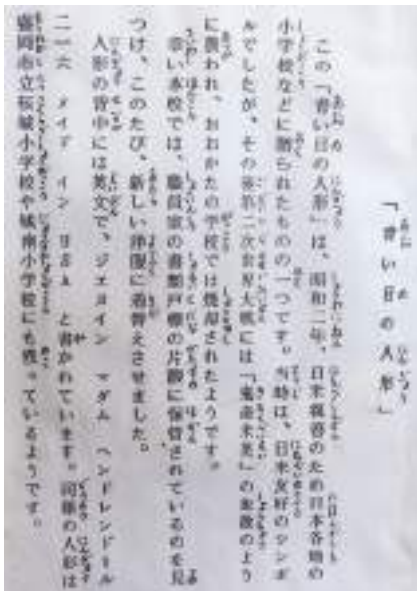 「青い目の人形」
この「青い目の人形」は、昭和二年、日米親善のため日本各地の
小学校などに贈られたものの一つです。当時は、日米友好のシンボ
ルでしたが、その後第二次世界大戦には「鬼畜米英」の象徴のよう
に扱われ、おおかたの学校では焼却されたようです。
幸い本校では、職員室の書類戸棚の片隅に保管されているのを見
つけ、このたび、新しい洋服に着替えさせました。
人形の背中には英文で、ジエヨイン マダム ヘンドレンドール
二一六 メイド イン USA と書かれています。同様の人形は
盛岡市立桜城小学校や城南小学校にも残っているようです。